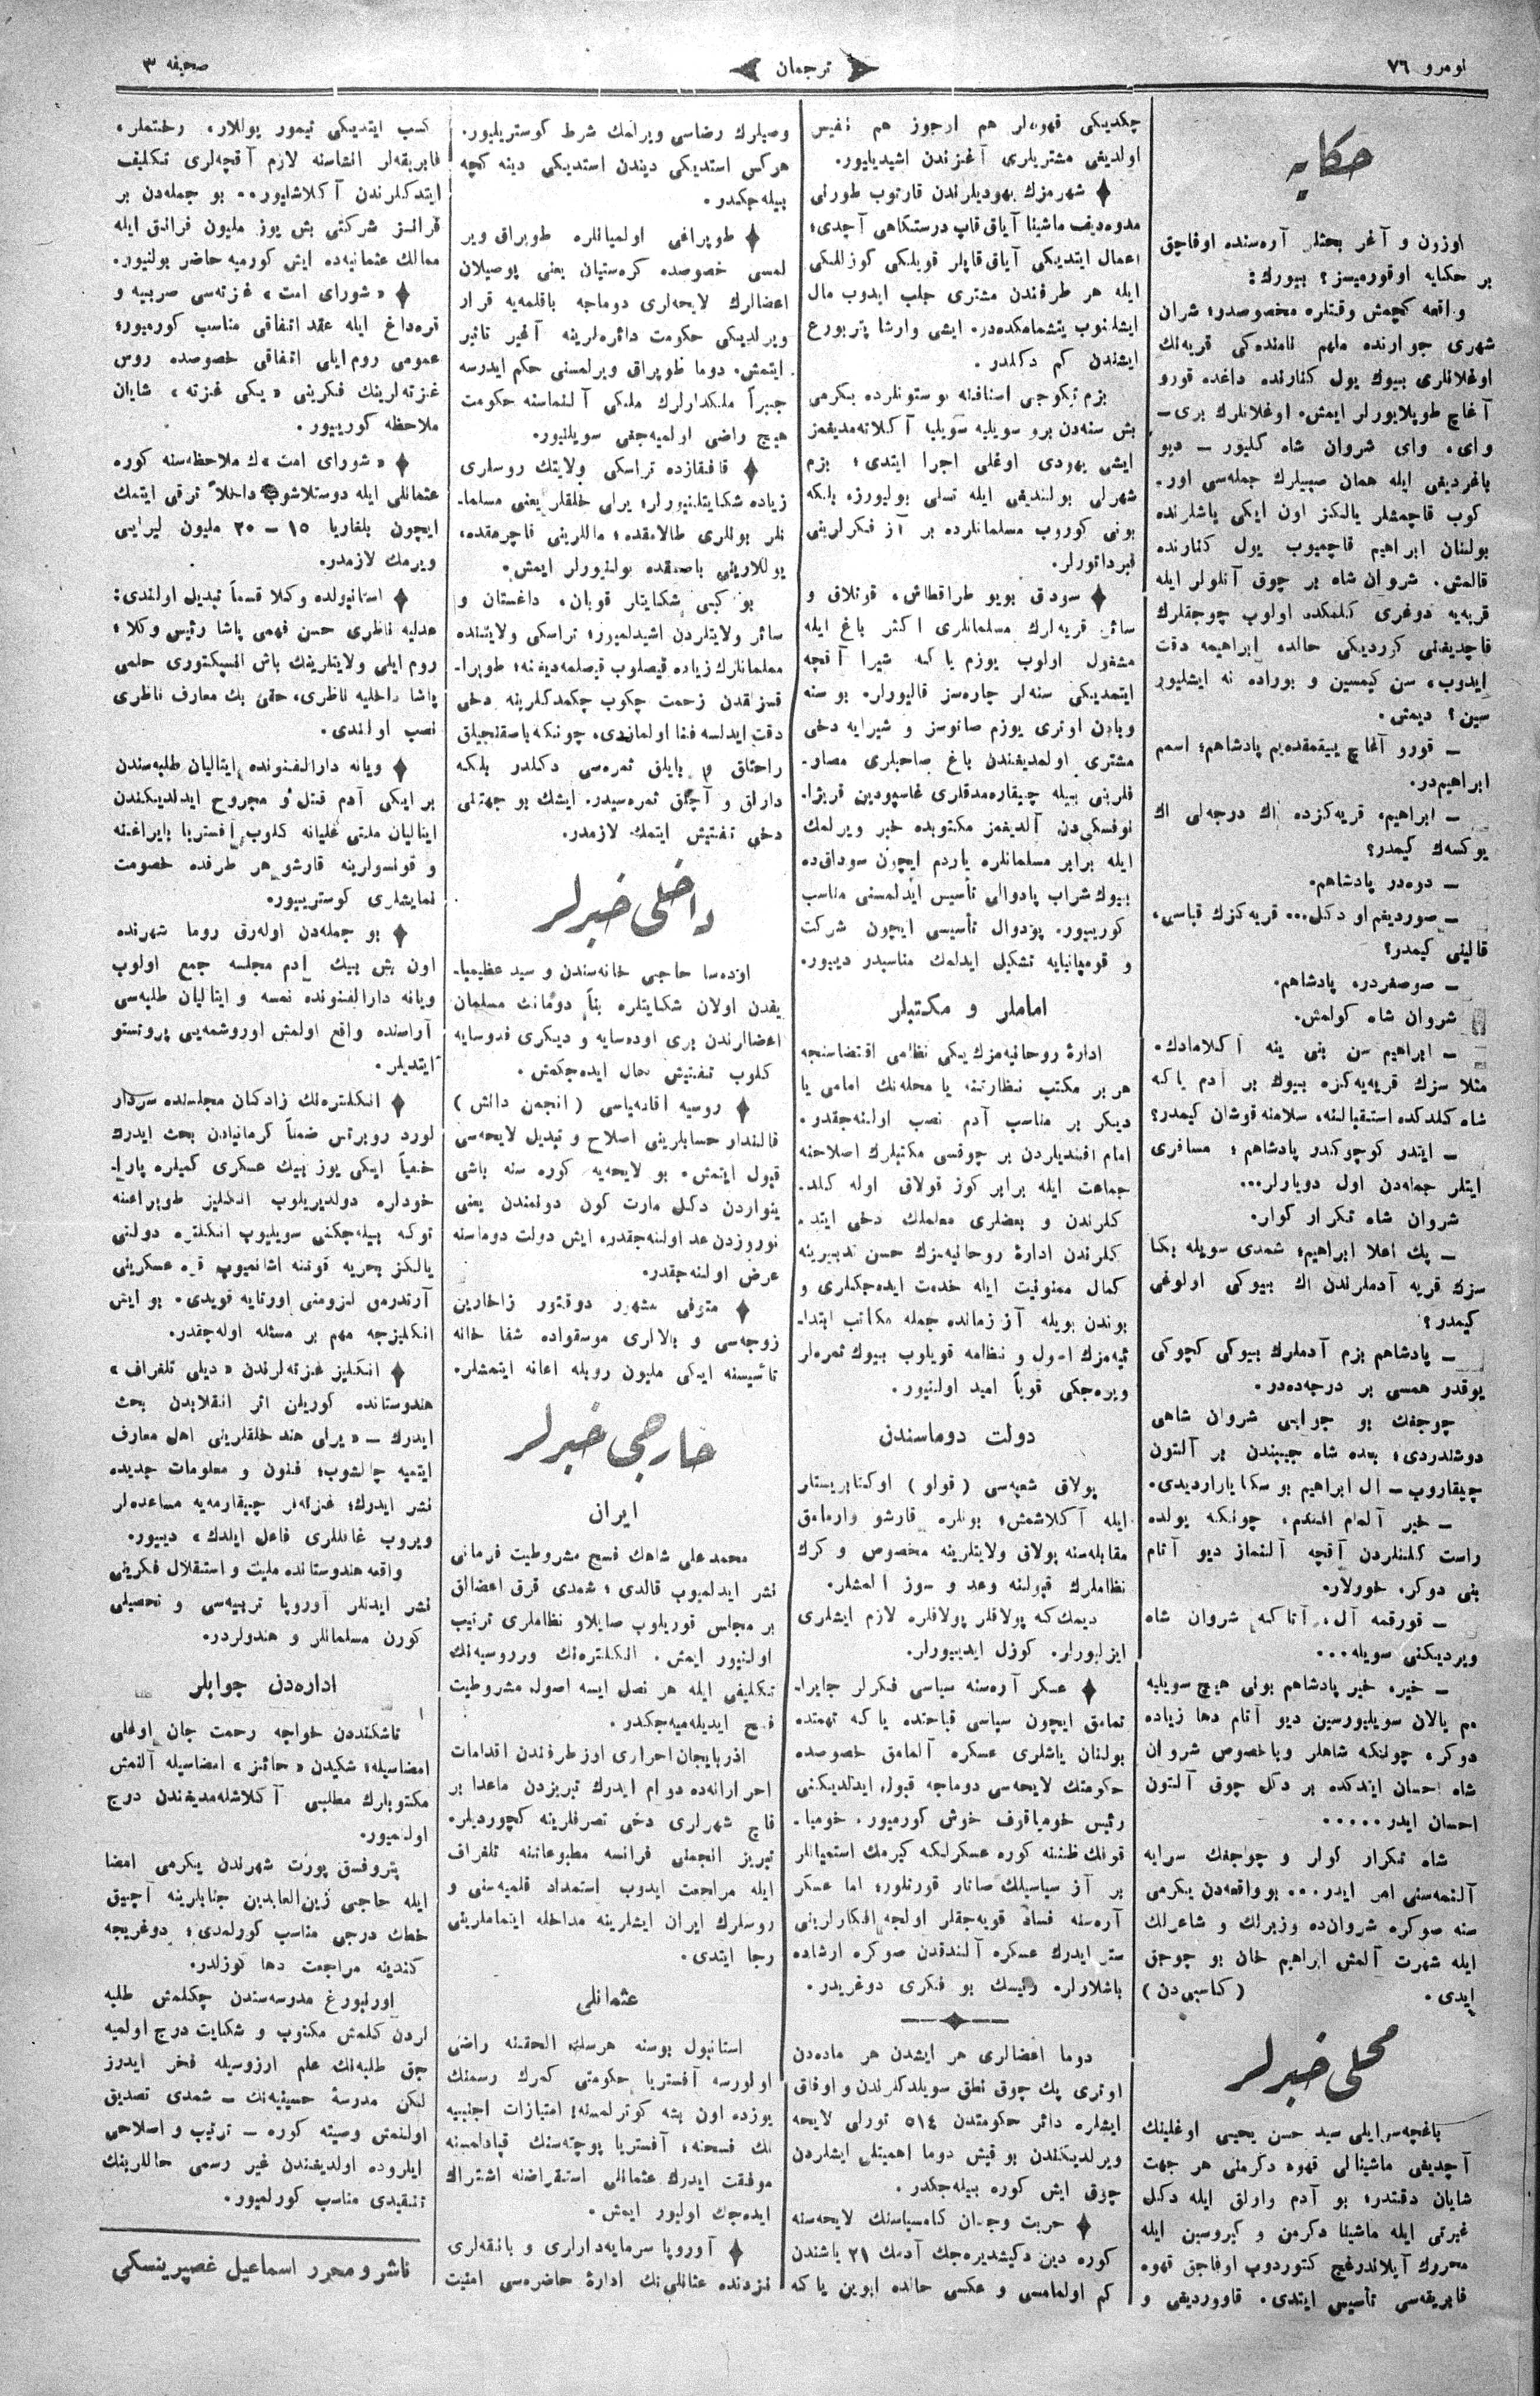 نومرو ٧٦
ترجمان
صحيفه ٣
حكايه
اوزون و آغر بحثلر آره‌سنده اوفاچق
بر حكايه اوقورميسز؟ بيورك:
واقعه كچمش وقتلره مخصوصدر؛ شران
شهرى جوارنده ملهم نامنده‌كى قريه‌نك
اوغلانلرى بيوك يول كنارنده داغده قورو
آغاچ طوپلايورلر ايمش. اوغلانلرك برى –
واى، واى شروان شاه كليور – ديو
باغرديغى ايله همان صبيلرك جمله‌سى اور-
كوب قاچمشلر يالكز اون ايكى ياشلرنده
بولنان ابراهيم قاچميوب يول كنارنده
قالمش. شروان شاه بر چوق آتلولر ايله
قريه‌يه دوغرى كلمكده اولوب چوجقلرك
قاچديغنى كرديكى حالده ابراهيمه دقت
ايدوب، سن كيمسين و بوراده نه ايشليور
سين؟ ديمش.
– قورو آغاچ ييقمقده‌يم پادشاهم؛ اسمم
ابراهيم‌در.
– ابراهيم، قريه‌كزده اك درجه‌لى اك
يوكسك كيمدر؟
– دوه‌در پادشاهم.
– صورديغم او دكل... قريه‌كزك قباسى،
قالينى كيمدر؟
– صوصغردر، پادشاهم.
شروان شاه كولمش.
– ابراهيم سن بنى ينه آكلامادك.
مثلا سزك قريه‌يه‌كزه بيوك بر آدم ياكه
شاه كلدكده استقبالنه، سلامنه قوشان كيمدر؟
– ايتدر كوچوكدر پادشاهم؛ مسافرى
ايتلر جمله‌دن اول دويارلر...
شروان شاه تكرار كولر.
– پك اعلا ابراهيم؛ شمدى سويله بكا
سزك قريه آدملرندن اك بيوكى اولوغى
كيمدر؟
– پادشاهم بزم آدملرك بيوكى كچوكى
يوقدر همسى بر درجه‌ده‌در.
چوجغك بو جوابى شروان شاهى
دوشندردى؛ بعده شاه جيبندن بر آلتون
چيقاروب – ال ابراهيم بو سكا يارار ديدى.
– خير آلمام افندم، چونكه يولده
راست كلنلردن آقچه آلنماز ديو آتام
بنى دوكر، خورلار.
– قورقمه آل، آتاكه شروان شاه
ويرديكنى سويله...
– خير، خير پادشاهم بونى هيچ سويليه
مم يالان سويليورسين ديو آتام دها زياده
دوكر، چونكه شاهلر وباخصوص شروان
شاه احسان ايتدكده بر دكل چوق آلتون
احسان ايدر.....
شاه تكرار كولر و چوجغك سرايه
آلنمه‌سنى امر ايدر... بو واقعه‌دن يكرمى
سنه صوكره شروان‌ده وزيرلك و شاعرلك
ايله شهرت آلمش ابراهيم خان بو چوجق
ايدى.
(كاسبى‌دن)
محلى خبرلر
باغچه‌سرايلى سيد حسن يحيى اوغلينك
آچديغى ماشينالى قهوه دكرمنى هر جهت
شايان دقتدر؛ بو آدم وارلق ايله دكل
غيرتى ايله ماشينا دكرمن و كيروسين ايله
محررك آيلاندرغچ كتوردوب اوفاجق قهوه
فابريقه‌سى تأسيس ايتدى. قاوورديغى و
چكديكى قهوه‌لر هم ارجوز هم نفيس
اولديغى مشتريلرى آغزندن اشيديليور.
شهرمزك يهوديلرندن قارتوب طورلى
مدوه‌ديف ماشينا آياق قاپ درستكاهى آچدى؛
اعمال ايتديكى آياق قاپلر قويلكى كوزللكى
ايله هر طرفندن مشترى جلب ايدوب مال
ايشلنوب يتشمامكده‌در. ايشى وارشا پتربورع
ايشندن كم دكلدر.
بزم تيكوجى اصنافنه بو ستونلرده يكرمى
بش سنه‌دن برو سويليه سويليه آكلاته‌مديغمز
ايشى يهودى اوغلى اجرا ايتدى؛ بزم
شهرلى بولنديغى ايله تسلى بوليورز، بلكه
بونى كوروب مسلمانلرده بر آز فكرلرينى
قبرداتورلر.
سوداق بويو طراقطاش، قوتلاق و
سائر قريه‌لرك مسلمانلرى اكثر باغ ايله
مشغول اولوب يوزم ياكه شيرا آقچه
ايتمديكى سنه‌لر چاره‌سز قاليورلر. بو سنه
وبادن اوترى يوزم صانوسز و شيرايه دخى
مشترى اولمديغندن باغ صاحبلرى مصار-
فلرينى بيله چيقاره‌مدقلرى غاسپودين قريزا-
نوفسكى‌دن آلديغمز مكتوبده خبر ويرلمك
ايله برابر مسلمانلره ياردم ايچون سوداق‌ده
بيوك شراب پادوالى تأسيس ايدلمسنى مناسب
كورييور. پودوال تأسيسى ايچون شركت
و قومپانيايه تشكيل ايدلمك مناسبدر دييور.
اماملر و مكتبلر
ادارهٔ روحانيه‌مزك يكى نظامى اقتضاسنجه
هر بر مكتب نظارتنه يا محله‌نك امامى يا
ديكر بر مناسب آدم نصب اولنه‌جقدر.
امام افنديلردن بر چوقسى مكتبلرك اصلاحنه
جماعت ايله برابر كوز قولاق اوله كلد-
كلرندن و بعضلرى معلملك دخى ايتد-
كلرندن ادارهٔ روحانيه‌مزك حسن تدبيرينه
كمال ممنونيت ايله خدمت ايده‌جكلرى و
بوندن بويله آز زمانده جمله مكاتب ابتدا-
ئيه‌مزك اصول و نظامه قويلوب بيوك ثمره‌لر
ويره‌جكى قوياً اميد اولنيور.
دولت دوماسندن
پولاق شعبه‌سى (قولو) اوكتابريستار
ايله آكلاشمش؛ بونلره قارشو وارمامق
مقابله‌سنه پولاق ولايتلرينه مخصوص و كرك
نظاملرك قبولنه وعد و سوز المشلر.
ديمك كه پولاقلر پولاقلره لازم ايشلرى
ايزليورلر. كوزل ايدييورلر.
عسكر آره‌سنه سياسى فكرلر جايرا-
تمامق ايچون سياسى قباحتده ياكه تهمتده
بولنان ياشلرى عسكره آلمامق خصوصده
حكومتك لايحه‌سى دوماجه قبول ايدلديكنى
رئيس خومياقوف خوش كورميور. خوميا-
قوفك ظننه كوره عسكرلكه كيرمك استميانلر
بر آز سياسيلك صاتار قورتلور؛ اما عسكر
آره‌سنه فساد قويه‌جقلر اولجه افكارلرينى
ستر ايدرك عسكره آلندقدن صوكره ارشاده
باشلارلر. رئيسك بو فكرى دوغريدر.
دوما اعضالرى هر ايشدن هر ماده‌دن
اوترى پك چوق نطق سويلدكلرندن و اوفاق
ايشلره دائر حكومتدن ٥١٤ تورلى لايحه
ويرلديكندن بو قيش دوما اهميتلى ايشلردن
چوق ايش كوره بيله‌جكدر.
حريت وجدان كاميسياسنك لايحه‌سنه
كوره دين دكيشديره‌جك آدمك ٢١ ياشندن
كم اولمامسى و عكسى حالده ابوين ياكه
وصيلرك رضاسى ويرلمك شرط كوستريليور.
هركس استديكى ديندن استديكى دينه كچه
بيله جكمدر.
طوپراغى اولميانلره طوپراق وير
لمسى خصوصده كره‌ستيان يعنى پوصيلان
اعضالرك لايحه‌لرى دوماجه باقلمه‌يه قرار
ويرلديكى حكومت دائره‌لرينه آغير تاثير
ايتمش. دوما طوپراق ويرلمسنى حكم ايدرسه
جبراً ملكدارلرك ملكى آلنماسنه حكومت
هيچ راضى اولميه‌جغى سويلنيور.
قافقازده تراسكى ولايتك روسلرى
زياده شكايتلنيورلر؛ يرلى خلقلر يعنى مسلما-
نلر بونلرى طالامقده؛ ماللرينى قاچرمقده،
يوللارينى باصمقده بولنيورلر ايمش.
بو كبى شكايتلر قوبان، داغستان و
سائر ولايتلردن اشيدلميور؛ تراسكى ولايتنده
مسلمانلرك زياده قيصلوب قيصلمه‌ديغنه؛ طوپرا-
قسزلقدن زحمت چكوب چكمدكلرينه دخى
دقت ايدلسه فنا اولمازدى، چونكه باصقنجيلق
راحتلق و بايلق ثمره‌سى دكلدر بلكه
دارلق و آچلق ثمره‌سيدر. ايشك بو جهتنى
دخى تفتيش ايتمك لازمدر.
داخلى خبرلر
اوده‌سا حاجى خانه‌سندن و سيد عظيمبا-
يفدن اولان شكايتلره بناً دومانك مسلمان
اعضالرندن برى اوده‌سايه و ديكرى فدوسايه
كلوب تفتيش حال ايده‌جكمش.
روسيه اقاده‌مياسى (انجمن دانش)
قالندار حسابلرينى اصلاح و تبديل لايحه‌سى
قبول ايتمش. بو لايحه‌يه كوره سنه باشى
ينواردن دكل مارت كون دونمندن يعنى
نوروزدن عد اولنه‌جقدر. ايش دولت دوماسنه
عرض اولنه‌جقدر.
متوفى مشهور دوقتور زاخارين
زوجه‌سى و بالالرى موسقواده شفا خانه
تأسيسنه ايكى مليون روبله اعانه ايتمشلر.
خارجى خبرلر
ايران
محمد على شاهك فسخ مشروطيت فرمانى
نشر ايدلميوب قالدى؛ شمدى قرق اعضالق
بر مجلس قوريلوب صايلاو نظاملرى ترتيب
اولنيور ايمش. انكلتره‌نك و روسيه‌نك
تكليفى ايله هر نصل ايسه اصول مشروطيت
فسخ ايديله‌ميه‌جكدر.
اذربايجان احرارى اوز طرفندن اقدامات
احرارانه‌ده دوام ايدرك تبريزدن ماعدا بر
قاچ شهرلرى دخى تصرفلرينه كچورديلر.
تبريز انجمنى فرانسه مطبوعاتنه تلغراف
ايله مراجعت ايدوب استمداد قلميه‌سنى و
روسلرك ايران ايشلرينه مداخله ايتماملرينى
رجا ايتدى.
عثمانلى
استانبول بوسنه هرسك الحقنه راضى
اولورسه آفستريا حكومتى كمرك رسمنك
يوزده اون بشه كوترلمسنه؛ امتيازات اجنبيه
نك فسخنه؛ آفستريا پوچته‌سنك قپادلمسنه
موفقت ايدرك عثمانلى استقراضنه اشتراك
ايده‌جك اوليور ايمش.
آوروپا سرمايه‌دارلرى و بانقه‌لرى
نزدنده عثمانلى‌نك ادارهٔ حاضره‌سى امنيت
كسب ايتديكى تيمور يوللار، رختملر،
فابريقه‌لر انشاسنه لازم آقچه‌لرى تكليف
ايتدكلرندن آكلاشليور.. بو جمله‌دن بر
فرانسز شركتى بش يوز مليون فرانق ايله
ممالك عثمانيه‌ده ايش كورميه حاضر بولنيور.
«شوراى امت» غزته‌سى صربيه و
قره‌داغ ايله عقد اتفاقى مناسب كورميور؛
عمومى روم ايلى اتفاقى خصوصده روس
غزته‌لرينك فكرينى «يكى غزته» شايان
ملاحظه كورييور.
«شوراى امت»ك ملاحظه‌سنه كوره
عثمانلى ايله دوستلاشوب داخلاً ترقى ايتمك
ايچون بلغاريا ١٥ – ٢٠ مليون ليرايى
ويرمك لازمدر.
استانبولده وكلا قسماً تبديل اولندى:
عدليه ناظرى حسن فهمى پاشا رئيس وكلا؛
روم ايلى ولايتلرينك باش انسپكتورى حلمى
پاشا داخليه ناظرى، حقى بك معارف ناظرى
نصب اولندى.
ويانه دارالفنونده ايتاليان طلبه‌سندن
بر ايكى آدم قتل و مجروح ايدلديكندن
ايتاليان ملتى غليانه كلوب آفستريا بايراغنه
و قونسولرينه قارشو هر طرفده خصومت
نمايشلرى كوسترييور.
بو جمله‌دن اوله‌رق روما شهرنده
اون بش بيك آدم مجلسه جمع اولوب
ويانه دارالفنونده نمسه و ايتاليان طلبه‌سى
آراسنده واقع اولمش اوروشمه‌يى پروتستو
ايتديلر.
انكلتره‌نك زادكان مجلسنده سردار
لورد روبرتس ضمناً كرمانيادن بحث ايدرك
خفياً ايكى يوز بيك عسكرى كميلره پارا-
خودلره دولديريلوب انكليز طوپراغنه
توكه بيله‌جكنى سويليوب انكلتره دولتى
يالكز بحريه قوتنه اشانميوب قره عسكرينى
آرتدرمق لزومنى اورتايه قويدى. بو ايش
انكليزجه مهم بر مسئله اوله‌جقدر.
انكليز غزته‌لرندن «ديلى تلغراف»
هندوستانده كوريلن اثر انقلابدن بحث
ايدرك – «يرلى هند خلقلرينى اهل معارف
ايتميه چالشوب؛ فنون و معلومات جديده
نشر ايدرك؛ غزته‌لر چيقارمه‌يه مساعده‌لر
ويروب غائللرى فاعل ايلدك» دييور.
واقعه هندوستانده مليت و استقلال فكرينى
نشر ايدنلر آوروپا تربيه‌سى و تحصيلى
كورن مسلمانلر و هندولردر.
اداره‌دن جوابلر
تاشكنددن خواجه رحمت جان اوغلى
امضاسيله؛ شكيدن «حائز» امضاسيله آلنمش
مكتوبلرك مطلبى آكلاشله‌مديغندن درج
اولنميور.
پتروفسق پورت شهرندن يكرمى امضا
ايله حاجى زين‌العابدين جنابلرينه آچيق
خطك درجى مناسب كورلمدى؛ دوغريجه
كندينه مراجعت دها كوزلدر.
اورنبورغ مدرسه‌سندن چكلمش طلبه
لردن كلمش مكتوب و شكايت درج اولميه
جق طلبه‌نك علم ارزوسيله فخر ايدرز
لكن مدرسهٔ حسينيه‌نك – شمدى تصديق
اولنمش وصيته كوره – ترتيب و اصلاحى
ايلروده اولديغندن غير رسمى حاللرينك
تنقيدى مناسب كورلميور.
ناشر و محرر اسماعيل غصپرينسكى